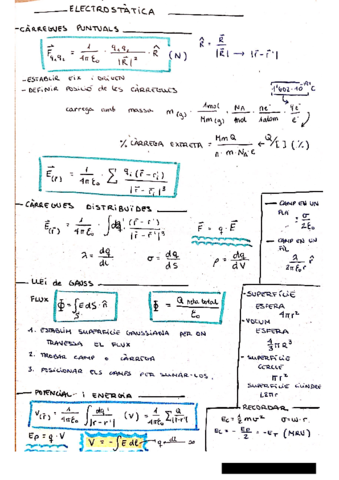 ELECTROSTÀTICA
- CÀRREGUES PUNTUALS
F⃗q₁q₂ = 1/4πε₀ · q₁q₂/|R⃗|² · R̂ (N)
R̂ = R⃗/|R⃗| → |r̄-r̄'|
- ESTABLIR EIX I DIUEN
- DEFINIR POSICIÓ DE LES CÀRREGUES
1'602·10⁻¹⁹C
càrrega amb massa: m(g) · 1mol/Mm(g) · NA/1mol · ne⁻/1àtom · qe⁻/e⁻
% CÀRREGA EXTRETA = Mm Q/n·m·NA·e
E⃗(r̄) = 1/4πε₀ · Σ qi(r̄-r̄i)/|r̄-r̄i|³
- CÀRREGUES DISTRIBUÏDES
E⃗(r̄) = 1/4πε₀ · ∫dq' (r̄-r̄')/|r̄-r̄'|³
F⃗ = q · E⃗
λ = dq/dl
σ = dq/dS
ρ = dq/dV
CAMP EN UN PLA
σ/2ε₀
CAMP EN UN FIL
λ/2πε₀r r̂
- LLEI DE GAUSS
FLUX
Φ = ∫E dS · n̂
Φ = Q nda total/ε₀
1. ESTABLIM SUPERFÍCIE GAUSSIANA PER ON
TRAVESSA EL FLUX
2. TROBAR CAMP O CÀRREGA
3. POSICIONAR ELS CAMPS PER SUMAR-LOS.
- SUPERFÍCIE
ESFERA
4πr²
- VOLUM
ESFERA
4/3 πR³
- SUPERFÍCIE
CERCLE
πr²
SUPERFÍCIE CILINDRE
- POTENCIAL I ENERGIA
V(r̄) = 1/4πε₀ ∫dq'/|r̄-r̄'| (V) = 1/4πε₀ Σ Q/|r̄-r̄'|
Ep = q · V
V = -∫E dl
- RECORDAR
Ec = 1/2 mv²